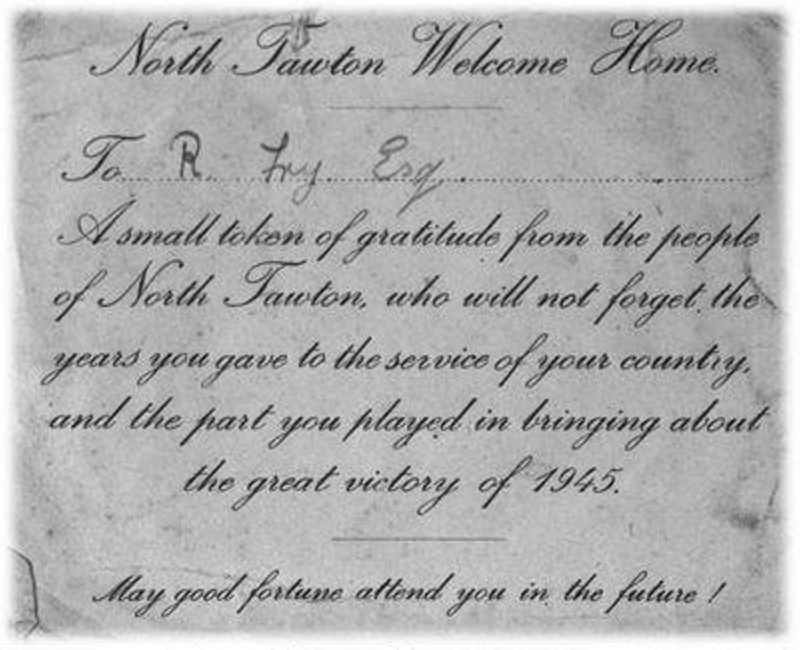 North Tawton Welcome Home.
To R. Fry Esq.
A small token of gratitude from the people
of North Tawton, who will not forget the
years you gave to the service of your country,
and the part you played in bringing about
the great victory of 1945.
May good fortune attend you in the future!